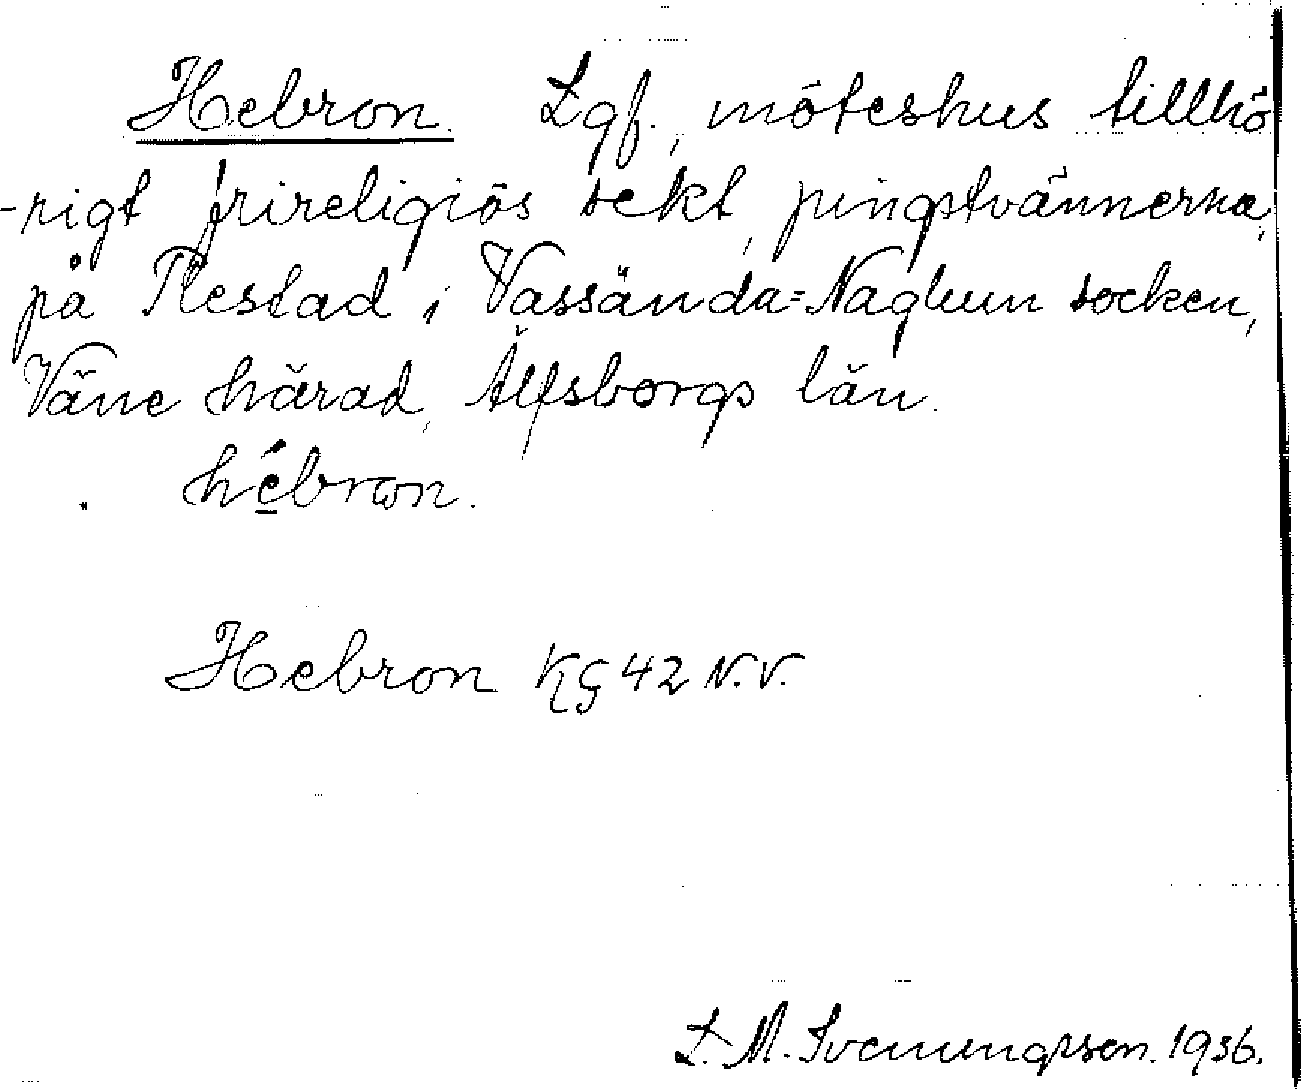 Hebron. Lgf., möteshus tillhö
-rigt frireligiös sekt, pingstvännerna,
på Restad i Vassända=Naglum socken,
Väne härad, Älfsborgs län.
hébron.
Hebron KG 42 N.V.
L. M. Svenungsson. 1936.